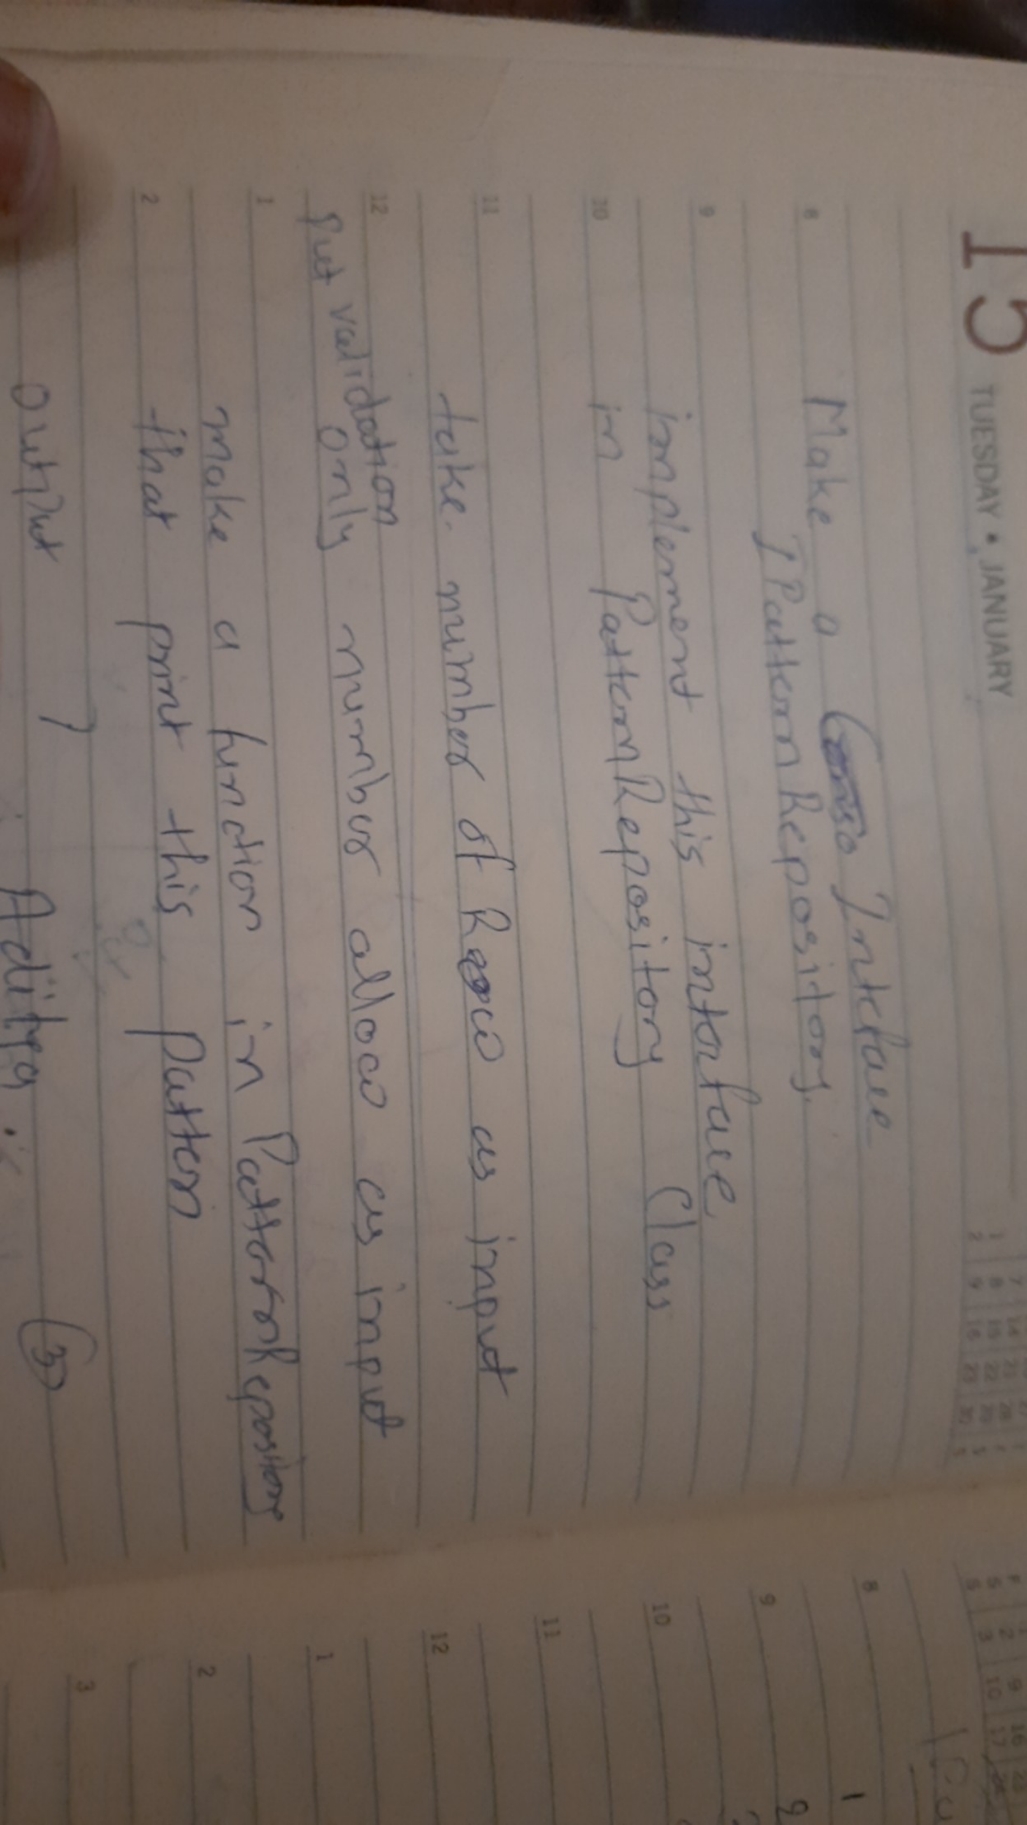 15 TUESDAY • JANUARY
Make a Inteface
IPatternRepository.
implement this interface
in PatternRepository Class
take number of Row as input
put validation
only number allow as input
make a function in PatternRepository
that print this pattern
output Aditya. 3
8
9
10
11
12
1
2
8
9
10
11
12
1
2
3
1
2